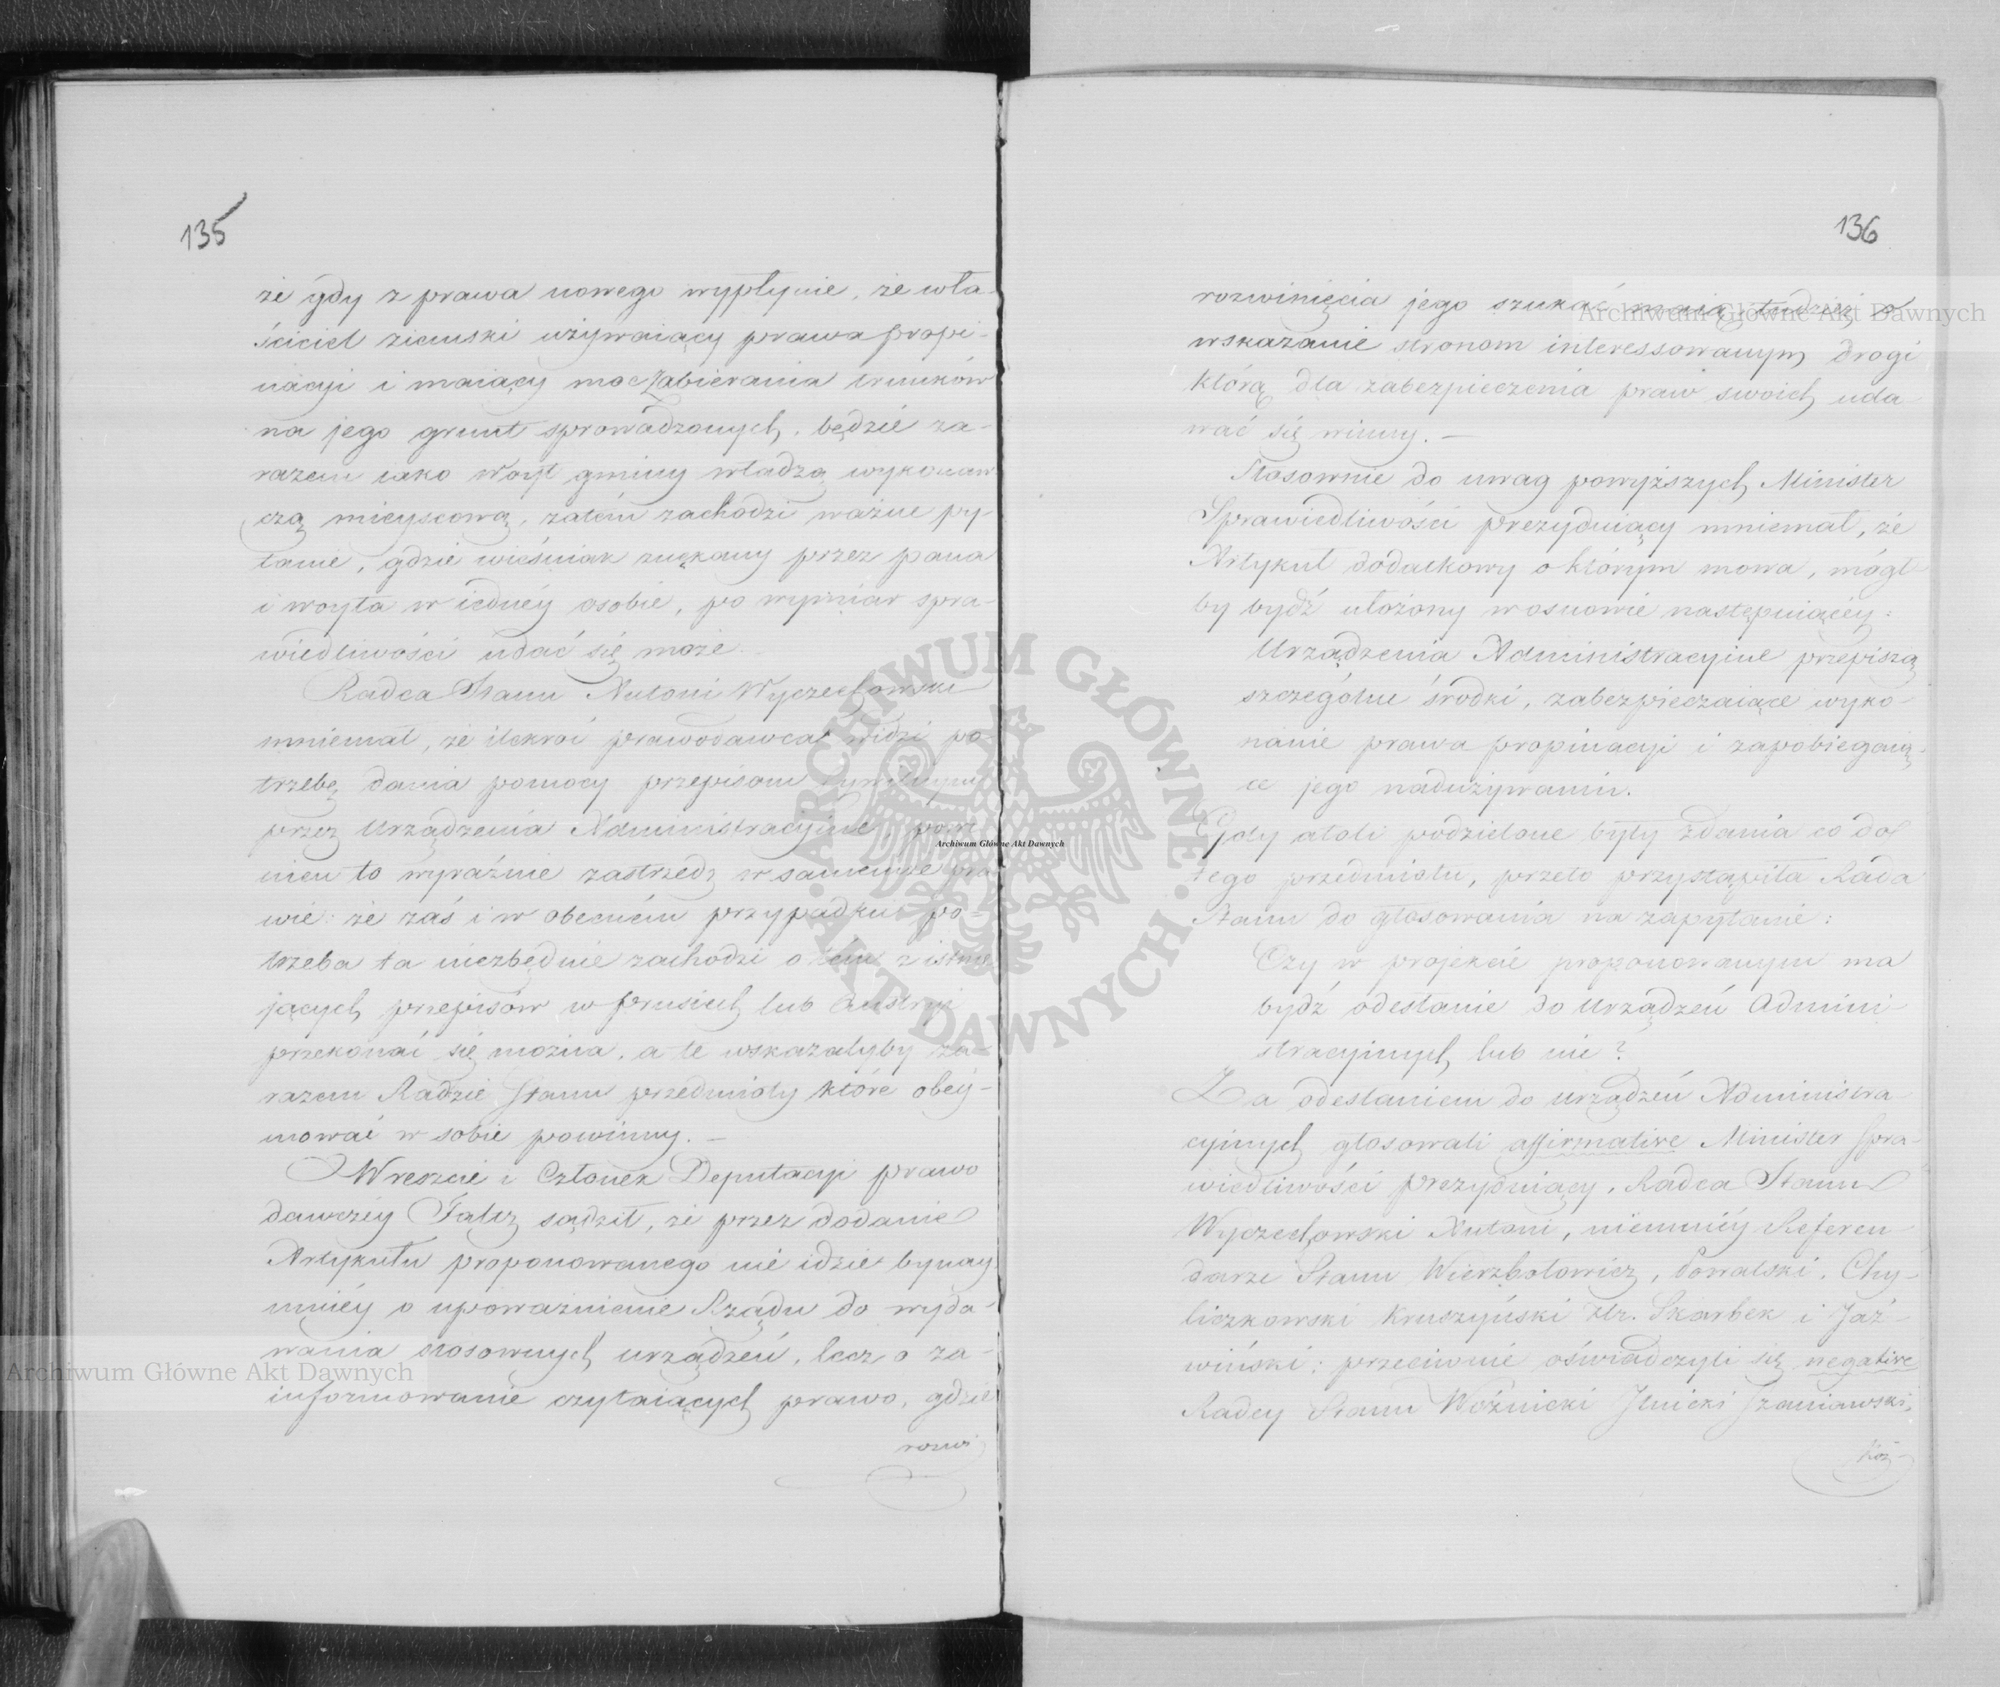 135
że gdy z prawa nowego wypłynie, że wła-
ściciel ziemski używaiący prawa propi-
nacyi i maiący moc zabierania trunków
na jego grunt sprowadzonych, będzie za-
razem iako Woyt gminy władzą wykonaw-
czą mieyscową, zatém zachodzi ważne py-
tanie, gdzie wieśniak nękany przez pana
i woyta w iednéy osobie, po wymiar spra-
wiedliwości udać się może.
Radca Stanu Antoni Wyczechowski
mniemał, że ilekroć prawodawca widzi po-
trzebę dania pomocy przepisom cywilnym
przez Urządzenia Administracyine, powi-
nien to wyraźnie zastrzedz w samémże pra-
wie: że zaś i w obecném przypadku po-
trzeba ta niezbędnie zachodzi o tém z istnie-
jących przepisów w Prusiech lub Austryi
przekonać się można, a te wskazałyby za-
razem Radzie Stanu przedmioty które obey-
mować w sobie powinny. —
Wreszcie i Członek Deputacyi prawo
dawczéy Faltz sądził, że przez dodanie
Artykułu proponowanego nie idzie bynay
mniéy o upoważnienie Rządu do wyda-
wania stosownych urządzeń, lecz o za-
informowanie czytaiących prawo, gdzie
rozwi
136
rozwinięcia jego szukać maią, tudzież o
wskazanie stronom interessowanym drogi
którą dla zabezpieczenia praw swoich uda
wać się winny. —
Stosownie do uwag powyższych Minister
Sprawiedliwości prezyduiący mniemał, że
Artykuł dodatkowy o którym mowa, mógł-
by bydź ułożony w osnowie następuiącéy:
Urządzenia Administracyine przepiszą
szczególne środki, zabezpieczaiące wyko-
nanie prawa propinacyi i zapobiegaią-
ce jego nadużywaniu.
Gdy atoli podzielone były zdania co do
tego przedmiotu, przeto przystąpiła Rada
Stanu do głosowania na zapytanie:
Czy w projekcie proponowanym ma
bydź odesłanie do Urządzeń Admini-
stracyinych lub nie?
Za odesłaniem do urządzeń Administra
cyinych głosowali affirmative Minister Spra-
wiedliwości prezyduiący, Radca Stanu
Wyczechowski Antoni, niemniéy Referen-
darze Stanu Wierzbołowicz, Kowalski, Chy-
liczkowski Kruszyński Hr. Skarbek i Jaź-
wiński; przeciwnie oświadczyli się negative
Radcy Stanu Woźnicki Jlnicki Szaniawski,
Koź
Archiwum Główne Akt Dawnych
Archiwum Główne Akt Dawnych
Archiwum Główne Akt Dawnych
ARCHIWUM GŁÓWNE AKT DAWNYCH